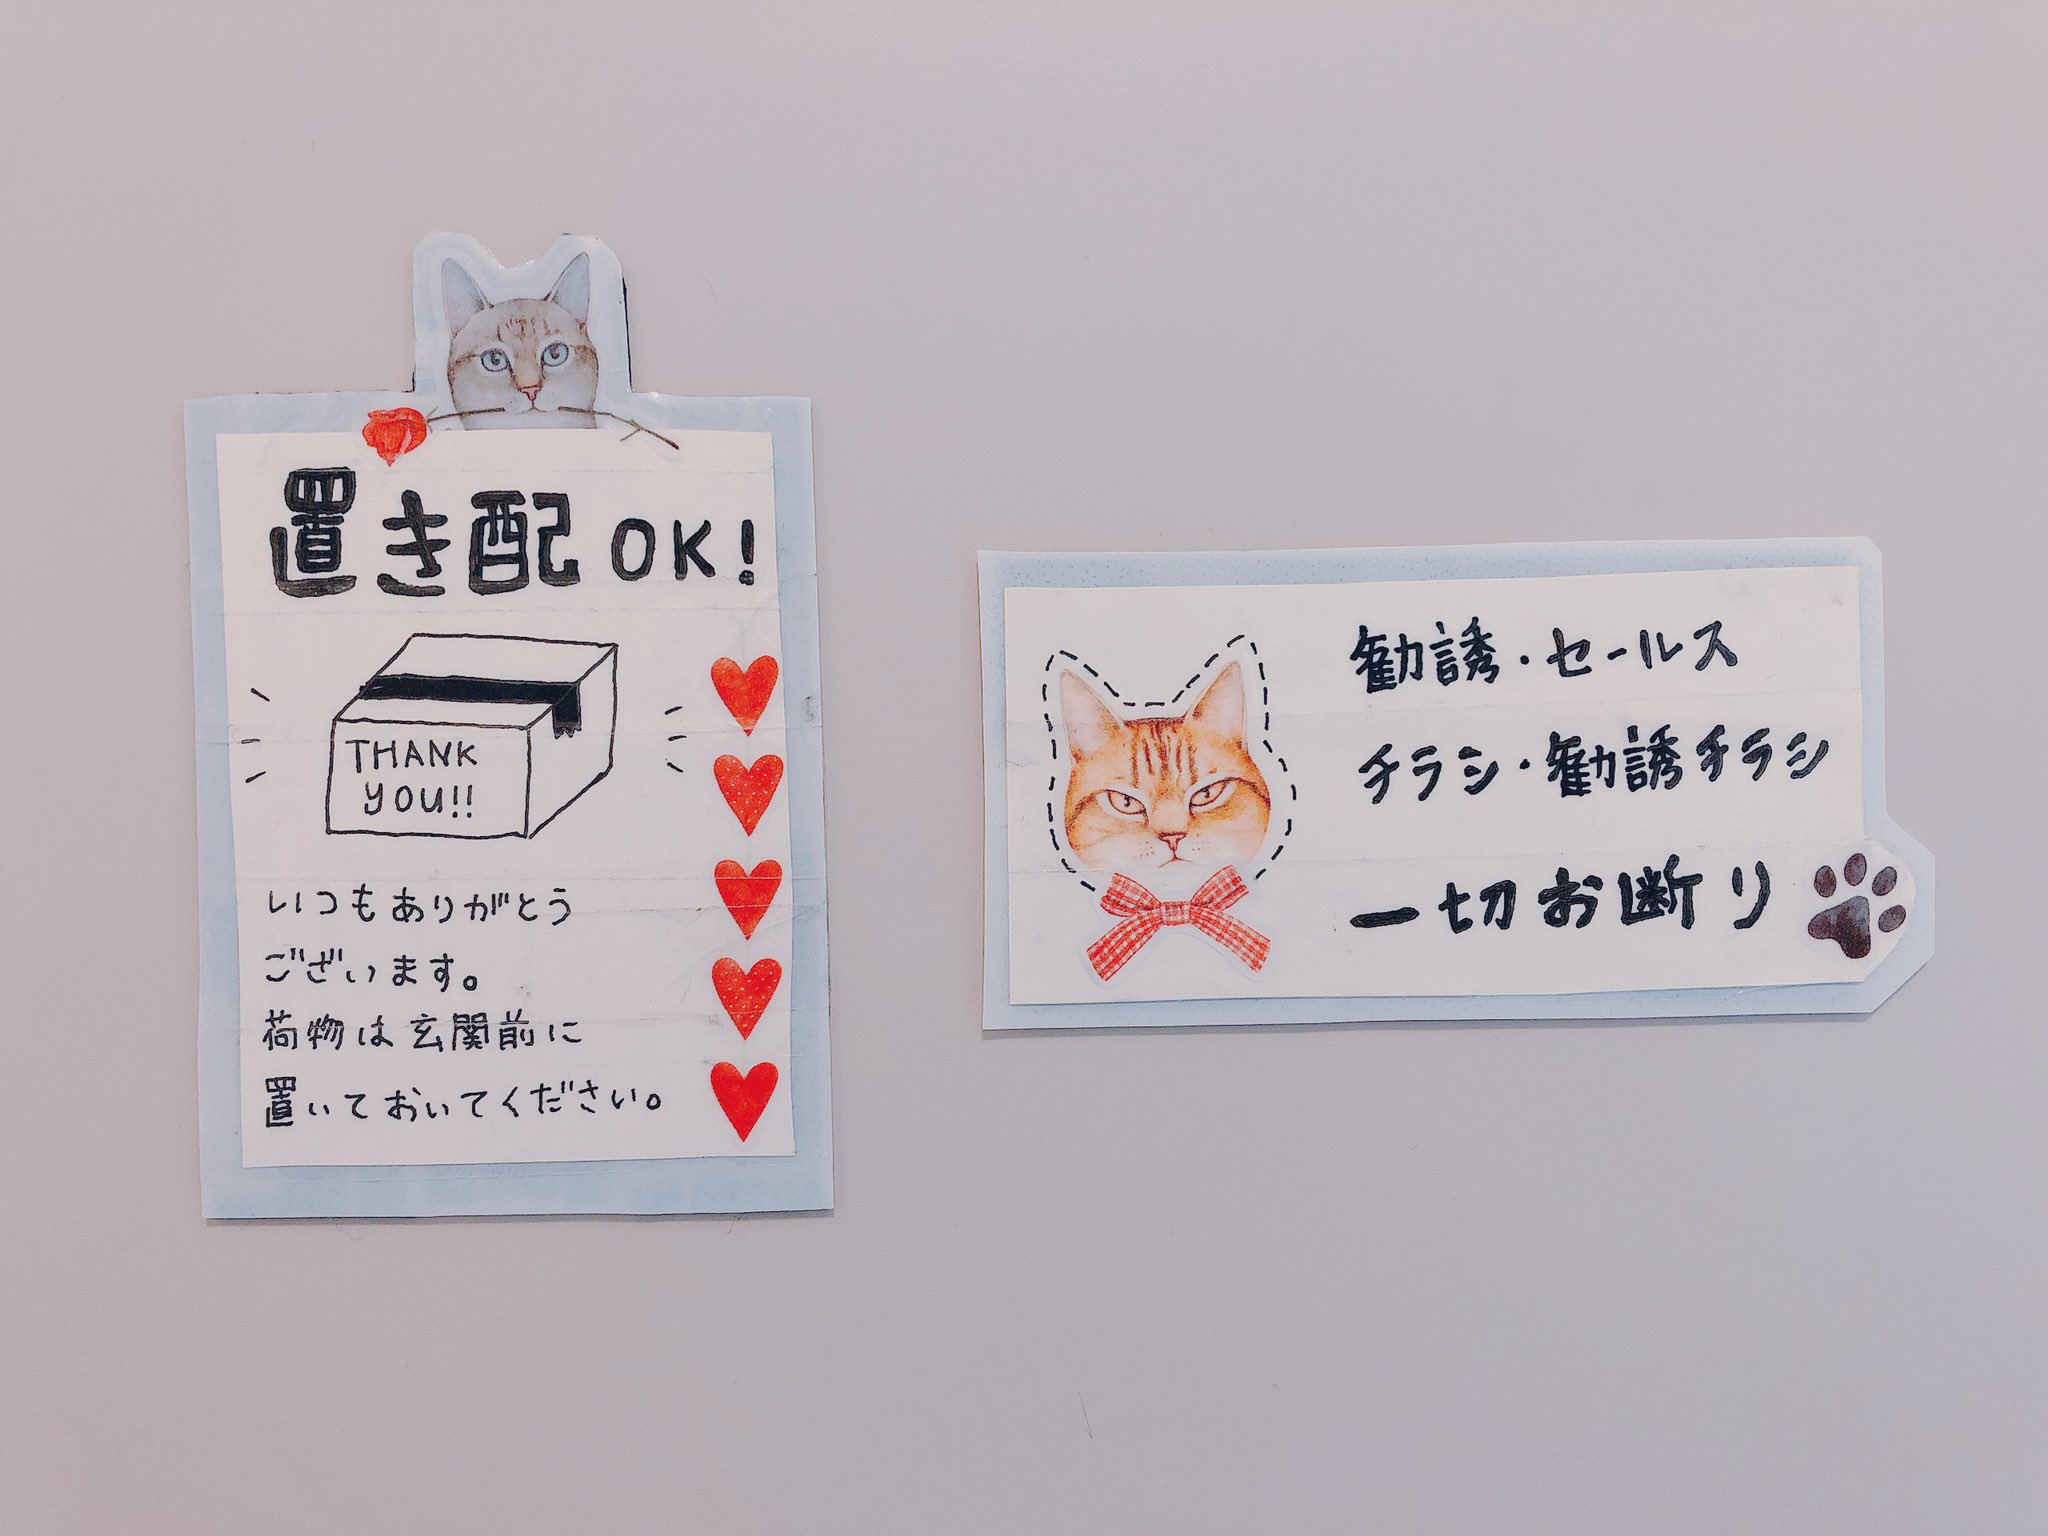 置き配OK!
THANK
YOU!!
いつもありがとう
ございます。
荷物は玄関前に
置いておいてください。
勧誘・セールス
チラシ・勧誘チラシ
一切お断り